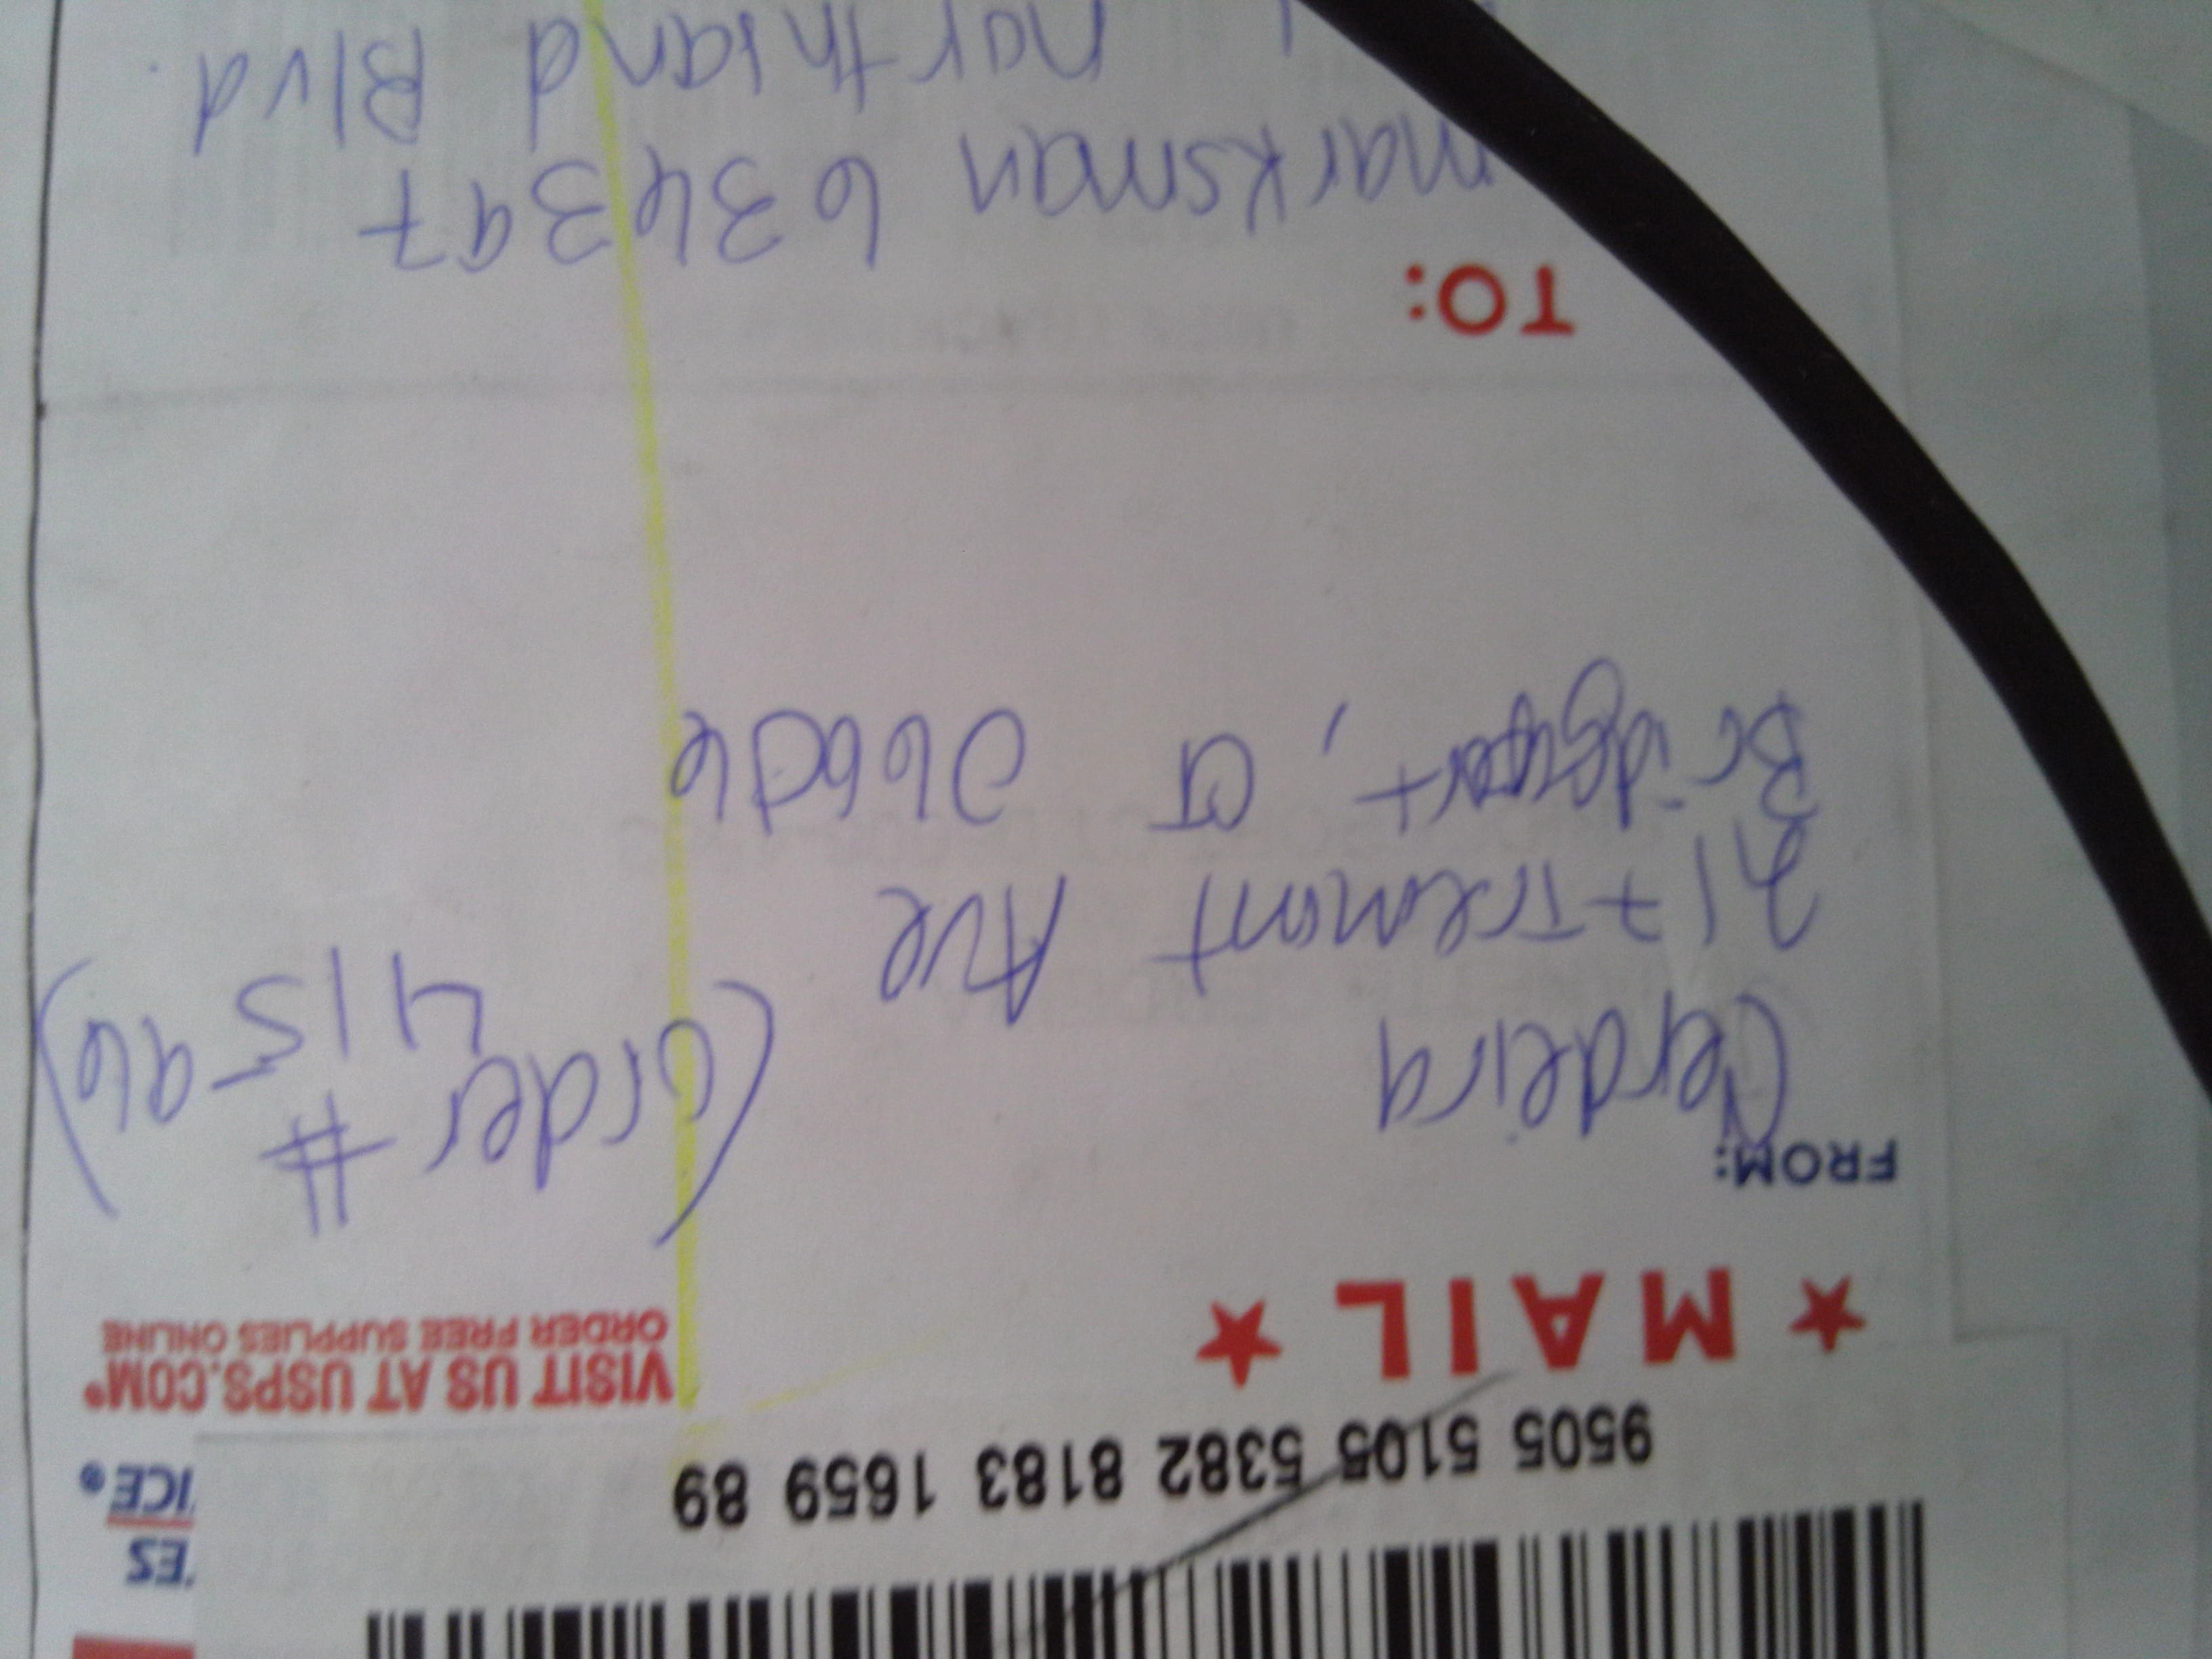 ES
ICE®
9505 5105 5382 8183 1659 89
★ MAIL ★
VISIT US AT USPS.COM®
ORDER FREE SUPPLIES ONLINE
FROM:
Cerdeira
(order #
415-96)
217 Tremont Ave
Bridgeport, CT 06606
TO:
marksman 636397
northland Blvd.